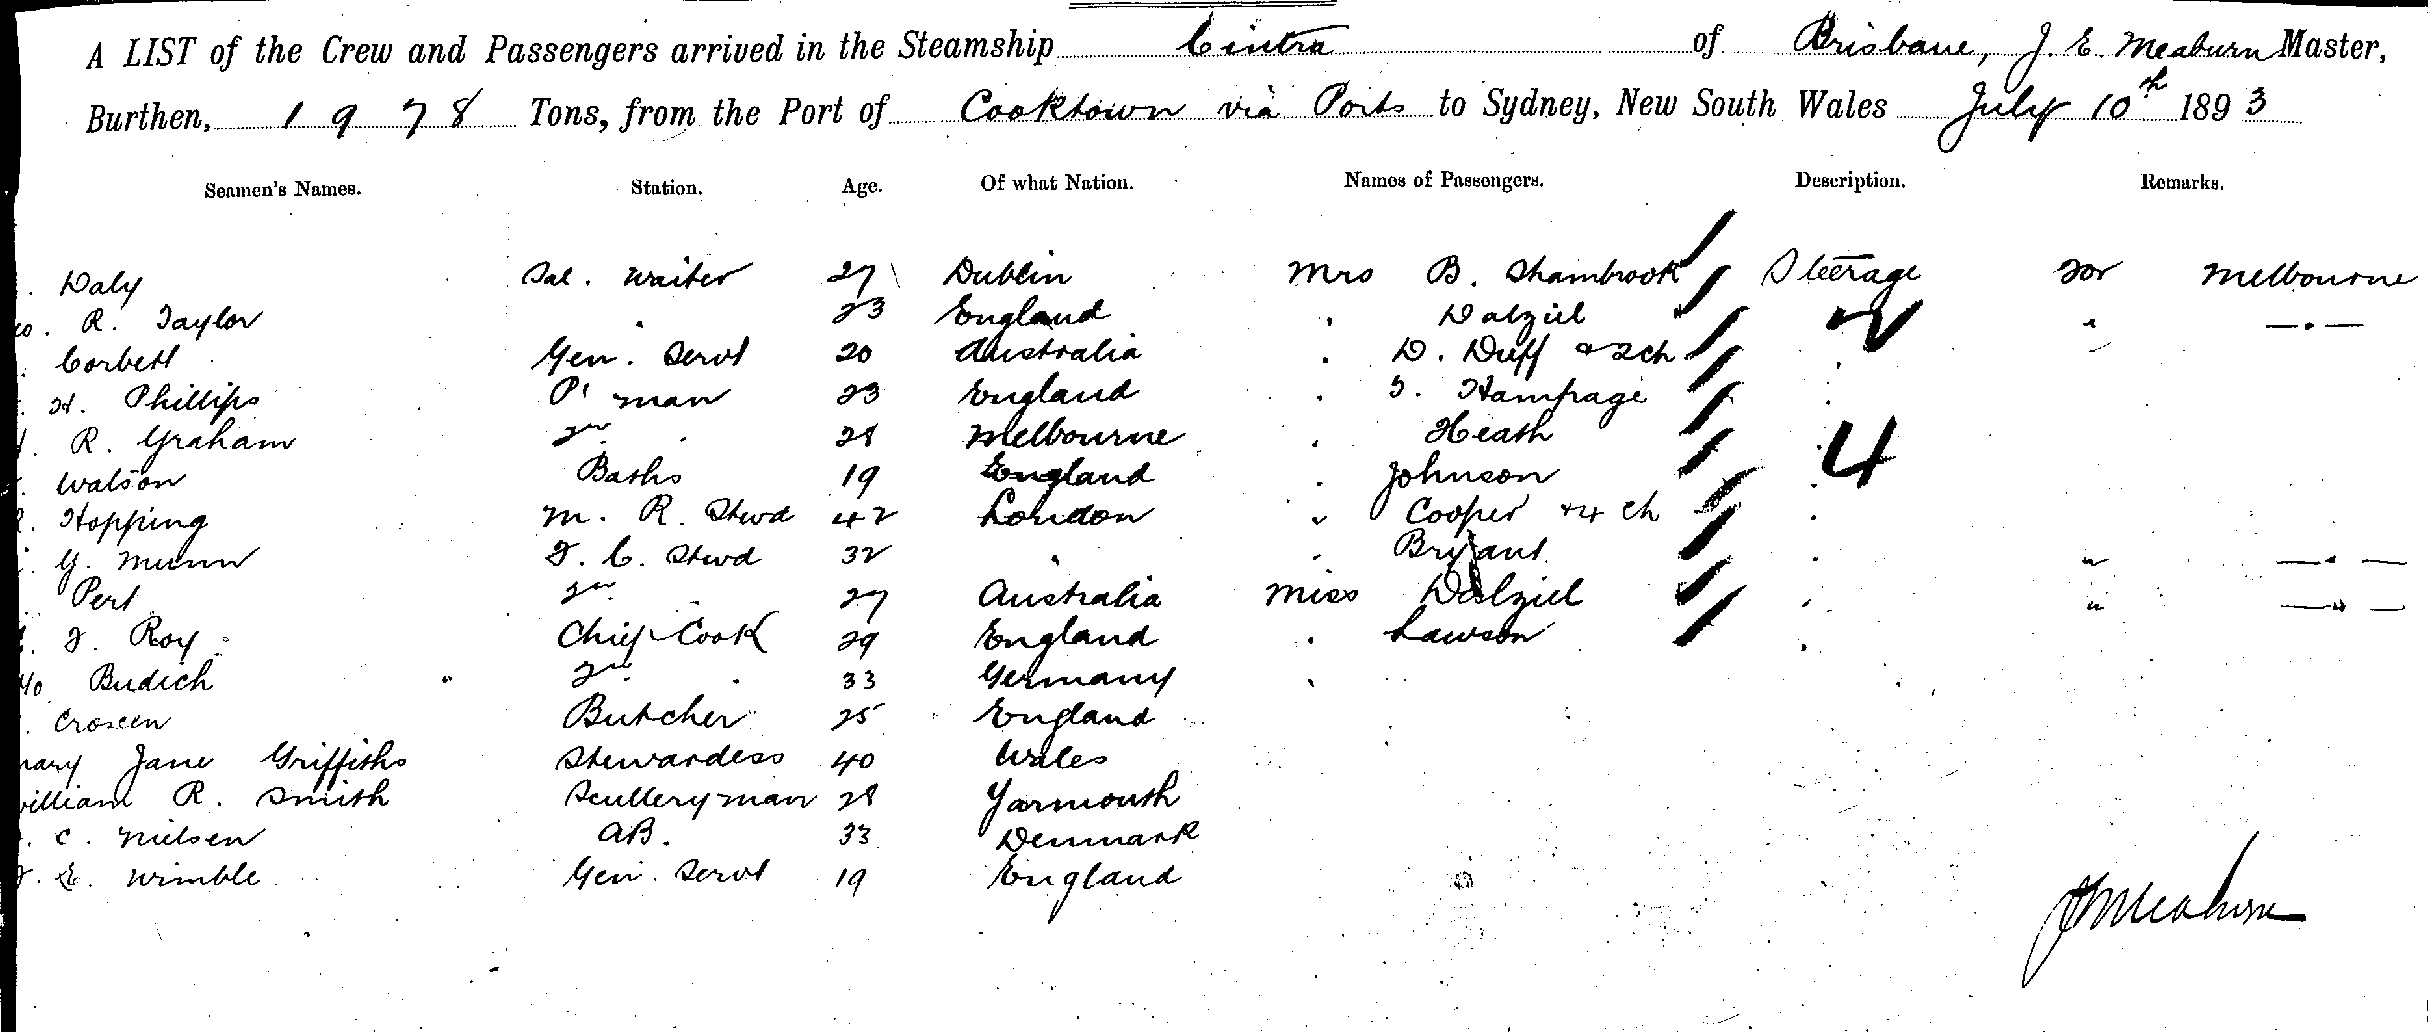 A LIST of the Crew and Passengers arrived in the Steamship Cintra of Brisbane, J. E. Meaburn Master,
Burthen, 1978 Tons, from the Port of Cooktown via Ports to Sydney, New South Wales July 10th 1893
Seamen's Names. Station. Age. Of what Nation. Names of Passengers. Description. Remarks.
Daly Sal. Waiter 27 Dublin Mrs B. Shambrook Steerage For Melbourne
R. Taylor " 23 England " Dalziel " " — " —
Corbett Gen. Servt 20 Australia " D. Duff & 2 ch "
H. Phillips P. man 23 England " Hampage "
R. Graham 2nd " 28 Melbourne " Heath 4
Watson Baths 19 England " Johnson "
Hopping M. R. Stwd 42 London " Cooper & 4 ch "
G. Munn F. C. Stwd 32 " " Bryant " " — " —
Pert 2nd 27 Australia Miss Dalziel " " — " —
F. Roy Chief Cook 29 England " Lawson "
Budich 2nd " 33 Germany "
Croseen Butcher 25 England
Mary Jane Griffiths Stewardess 40 Wales
William R. Smith Sculleryman 28 Yarmouth
C. Nielsen AB. 33 Denmark
E. Wimble Gen. Servt 19 England
J E Meaburn